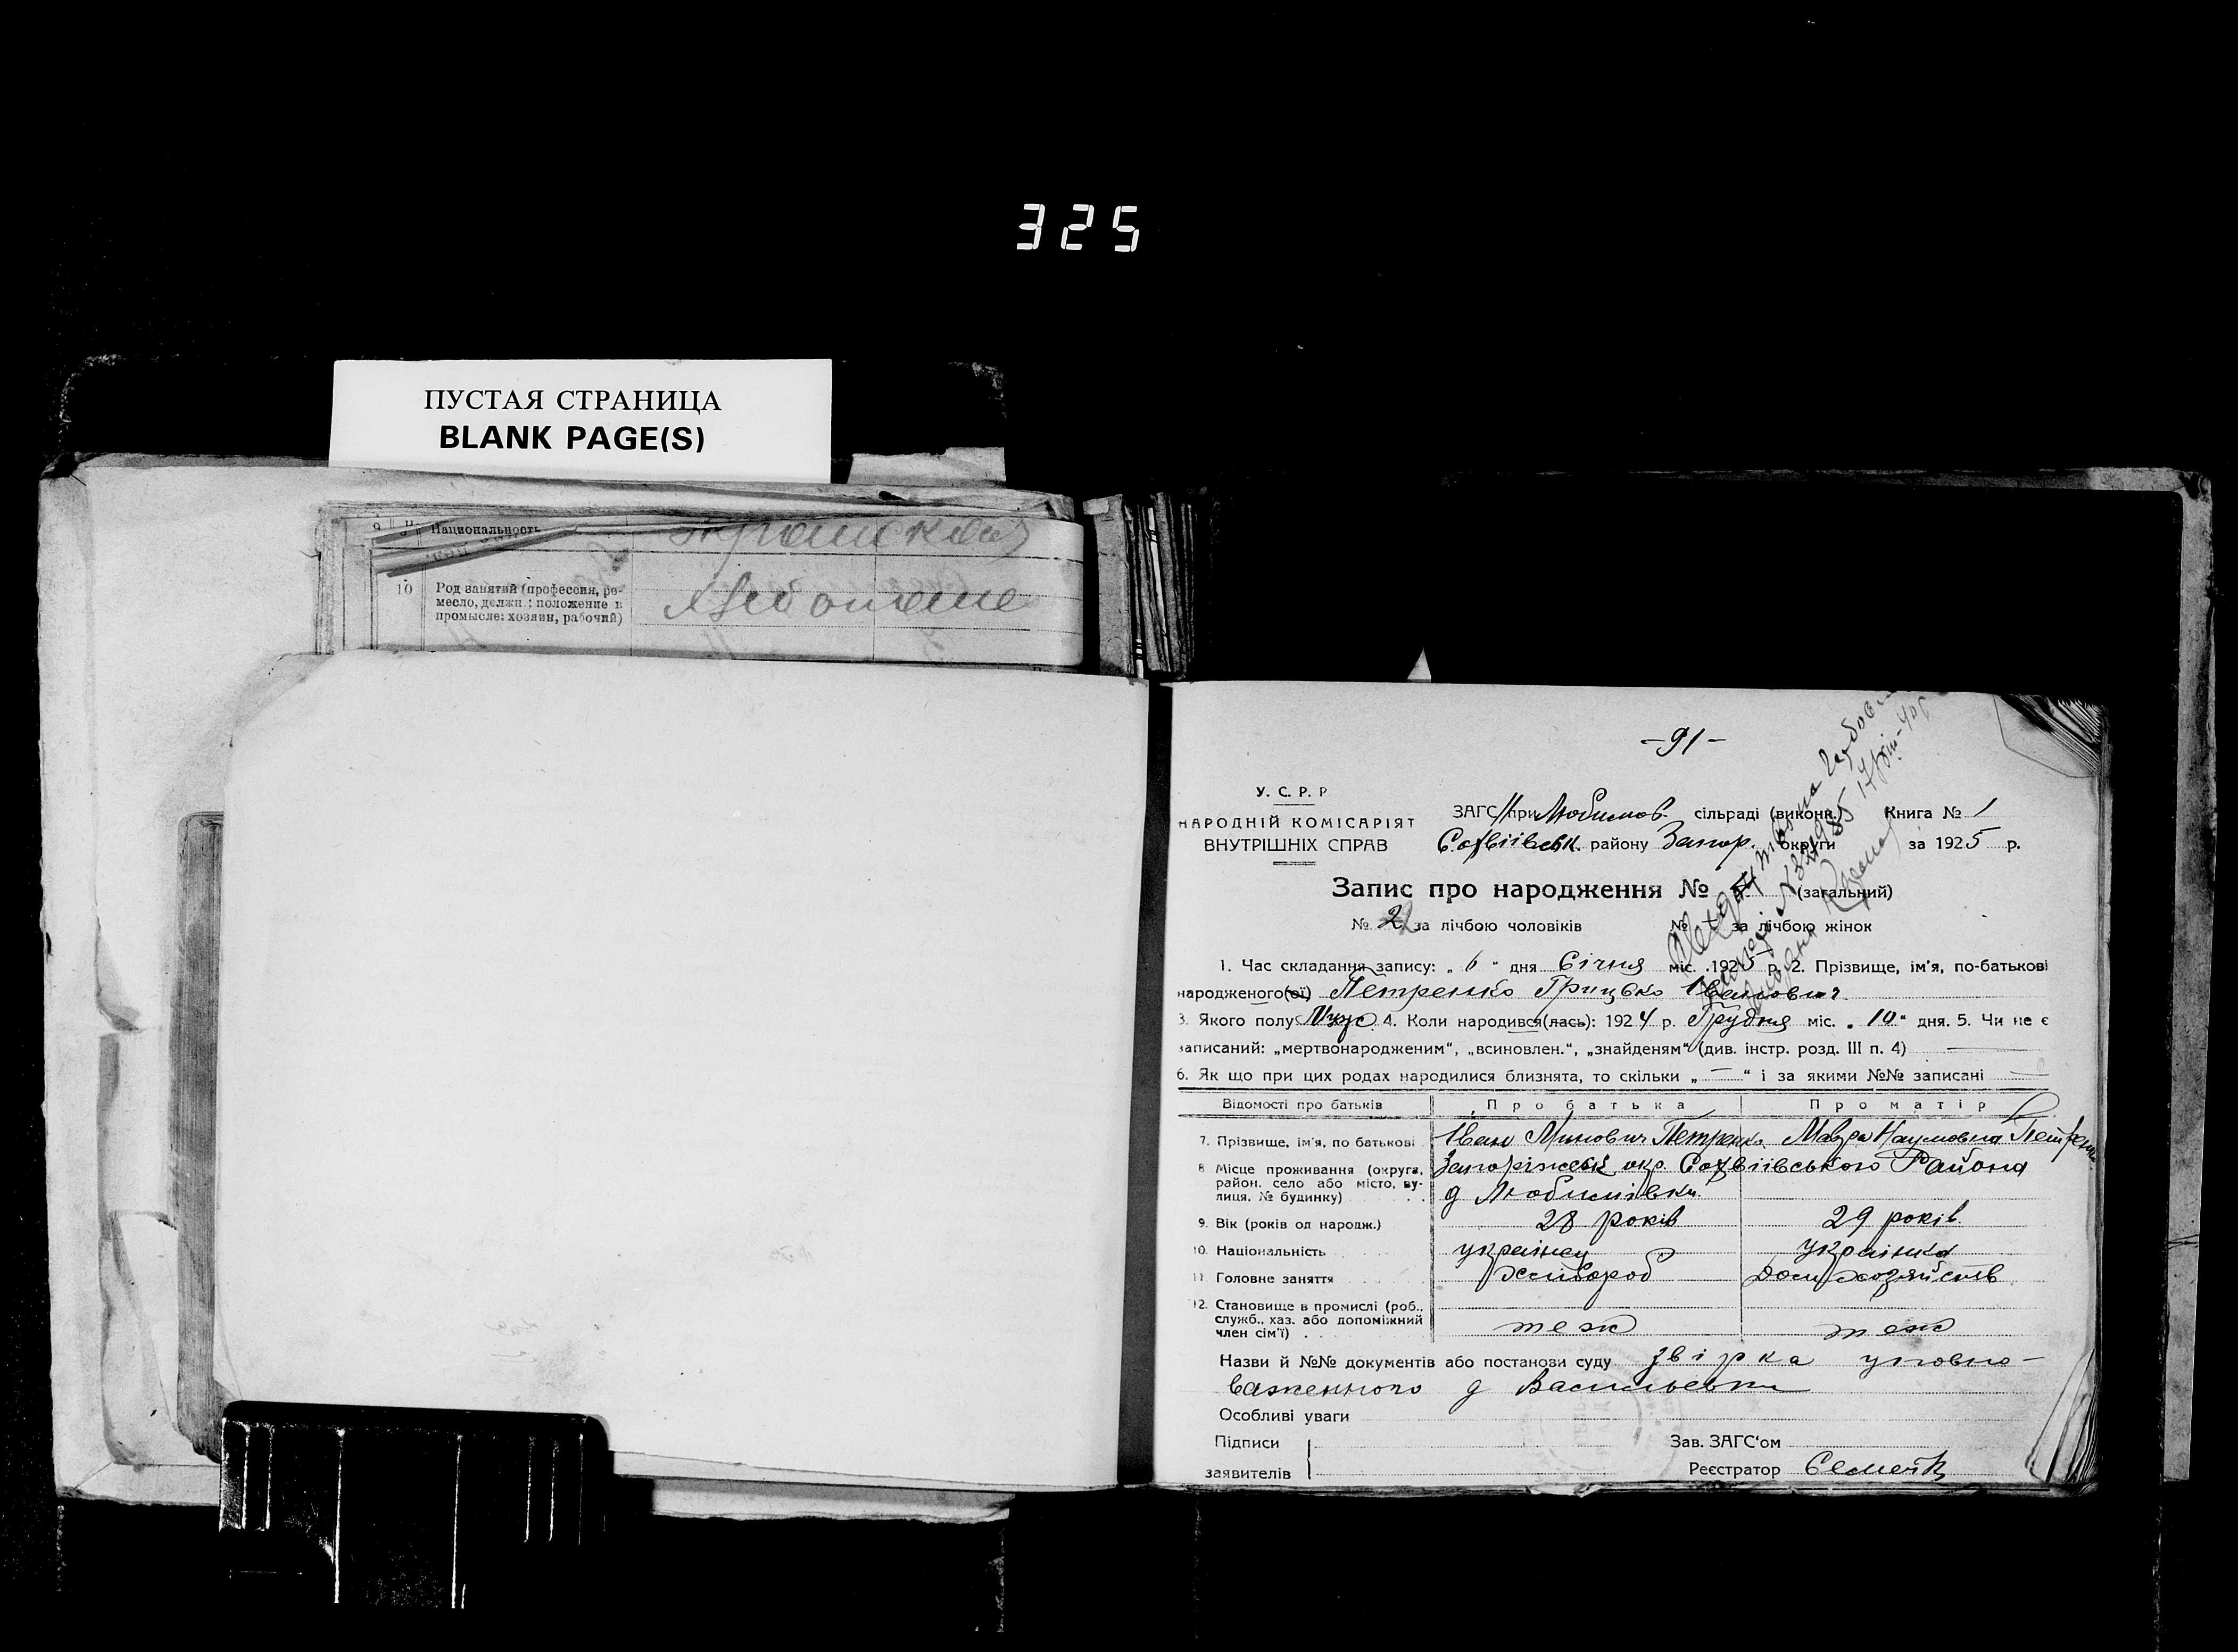 325
ПУСТАЯ СТРАНИЦА
BLANK PAGE(S)
9 Национальность
10 Род занятий (профессия, ре-
месло, должн.; положение в
промысле: хозяин, рабочий)
-91-
У. С. Р. Р
НАРОДНІЙ КОМІСАРІЯТ
ВНУТРІШНІХ СПРАВ
ЗАГС при Любимов. сільраді (виконк.) Книга № 1
Софіївськ. району Запор. округи за 1925 р.
Запис про народження № (загальний)
№ 2 за лічбою чоловіків № за лічбою жінок
1. Час складання запису: „ 6 “ дня Січня міс. 1925 р. 2. Прізвище, ім'я, по-батькові
народженого(ої) Петренко Грицько Іванович
3. Якого полу Муж. 4. Коли народився(лась): 1924 р. Грудня міс. „ 10 “ дня. 5. Чи не є
записаний: „мертвонародженим“, „всиновлен.“, „знайденям“ (див. інстр. розд. III п. 4)
6. Як що при цих родах народилися близнята, то скільки „ — “ і за якими №№ записані —
Відомості про батьків Про батька Про матір
7. Прізвище, ім'я, по батькові Іван Минович Петренко Мавра Наумовна Петренко
8 Місце проживання (округа, район, село або місто, ву- лиця, № будинку) Запоріжськ окр. Софіївського Района
д Любимівки.
9. Вік (років од народж.) 28 років 29 років.
10. Національність українец українка
11. Головне заняття хлібороб Дом хозяйств
12. Становище в промислі (роб.,
служб., хаз. або допоміжний
член сім'ї) теж теж
Назви й №№ документів або постанови суду звірка уповно-
важенного д Васильевки
Особливі уваги
Підписи Зав. ЗАГС'ом
заявителів Реєстратор